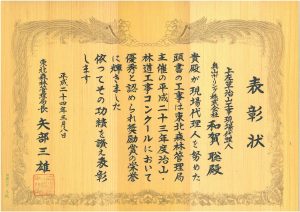 表彰状
上左草治山工事現場代理人
奥山ボーリング株式会社
和賀 聡殿
貴殿が現場代理人を努めた
頭書の工事は東北森林管理局
主催の平成二十三年度治山・
林道工事コンクールにおいて
優秀と認められ奨励賞の栄誉
に輝きました
依ってその功績を讃え表彰
します
平成二十四年三月八日
東北森林管理局長
矢部三雄